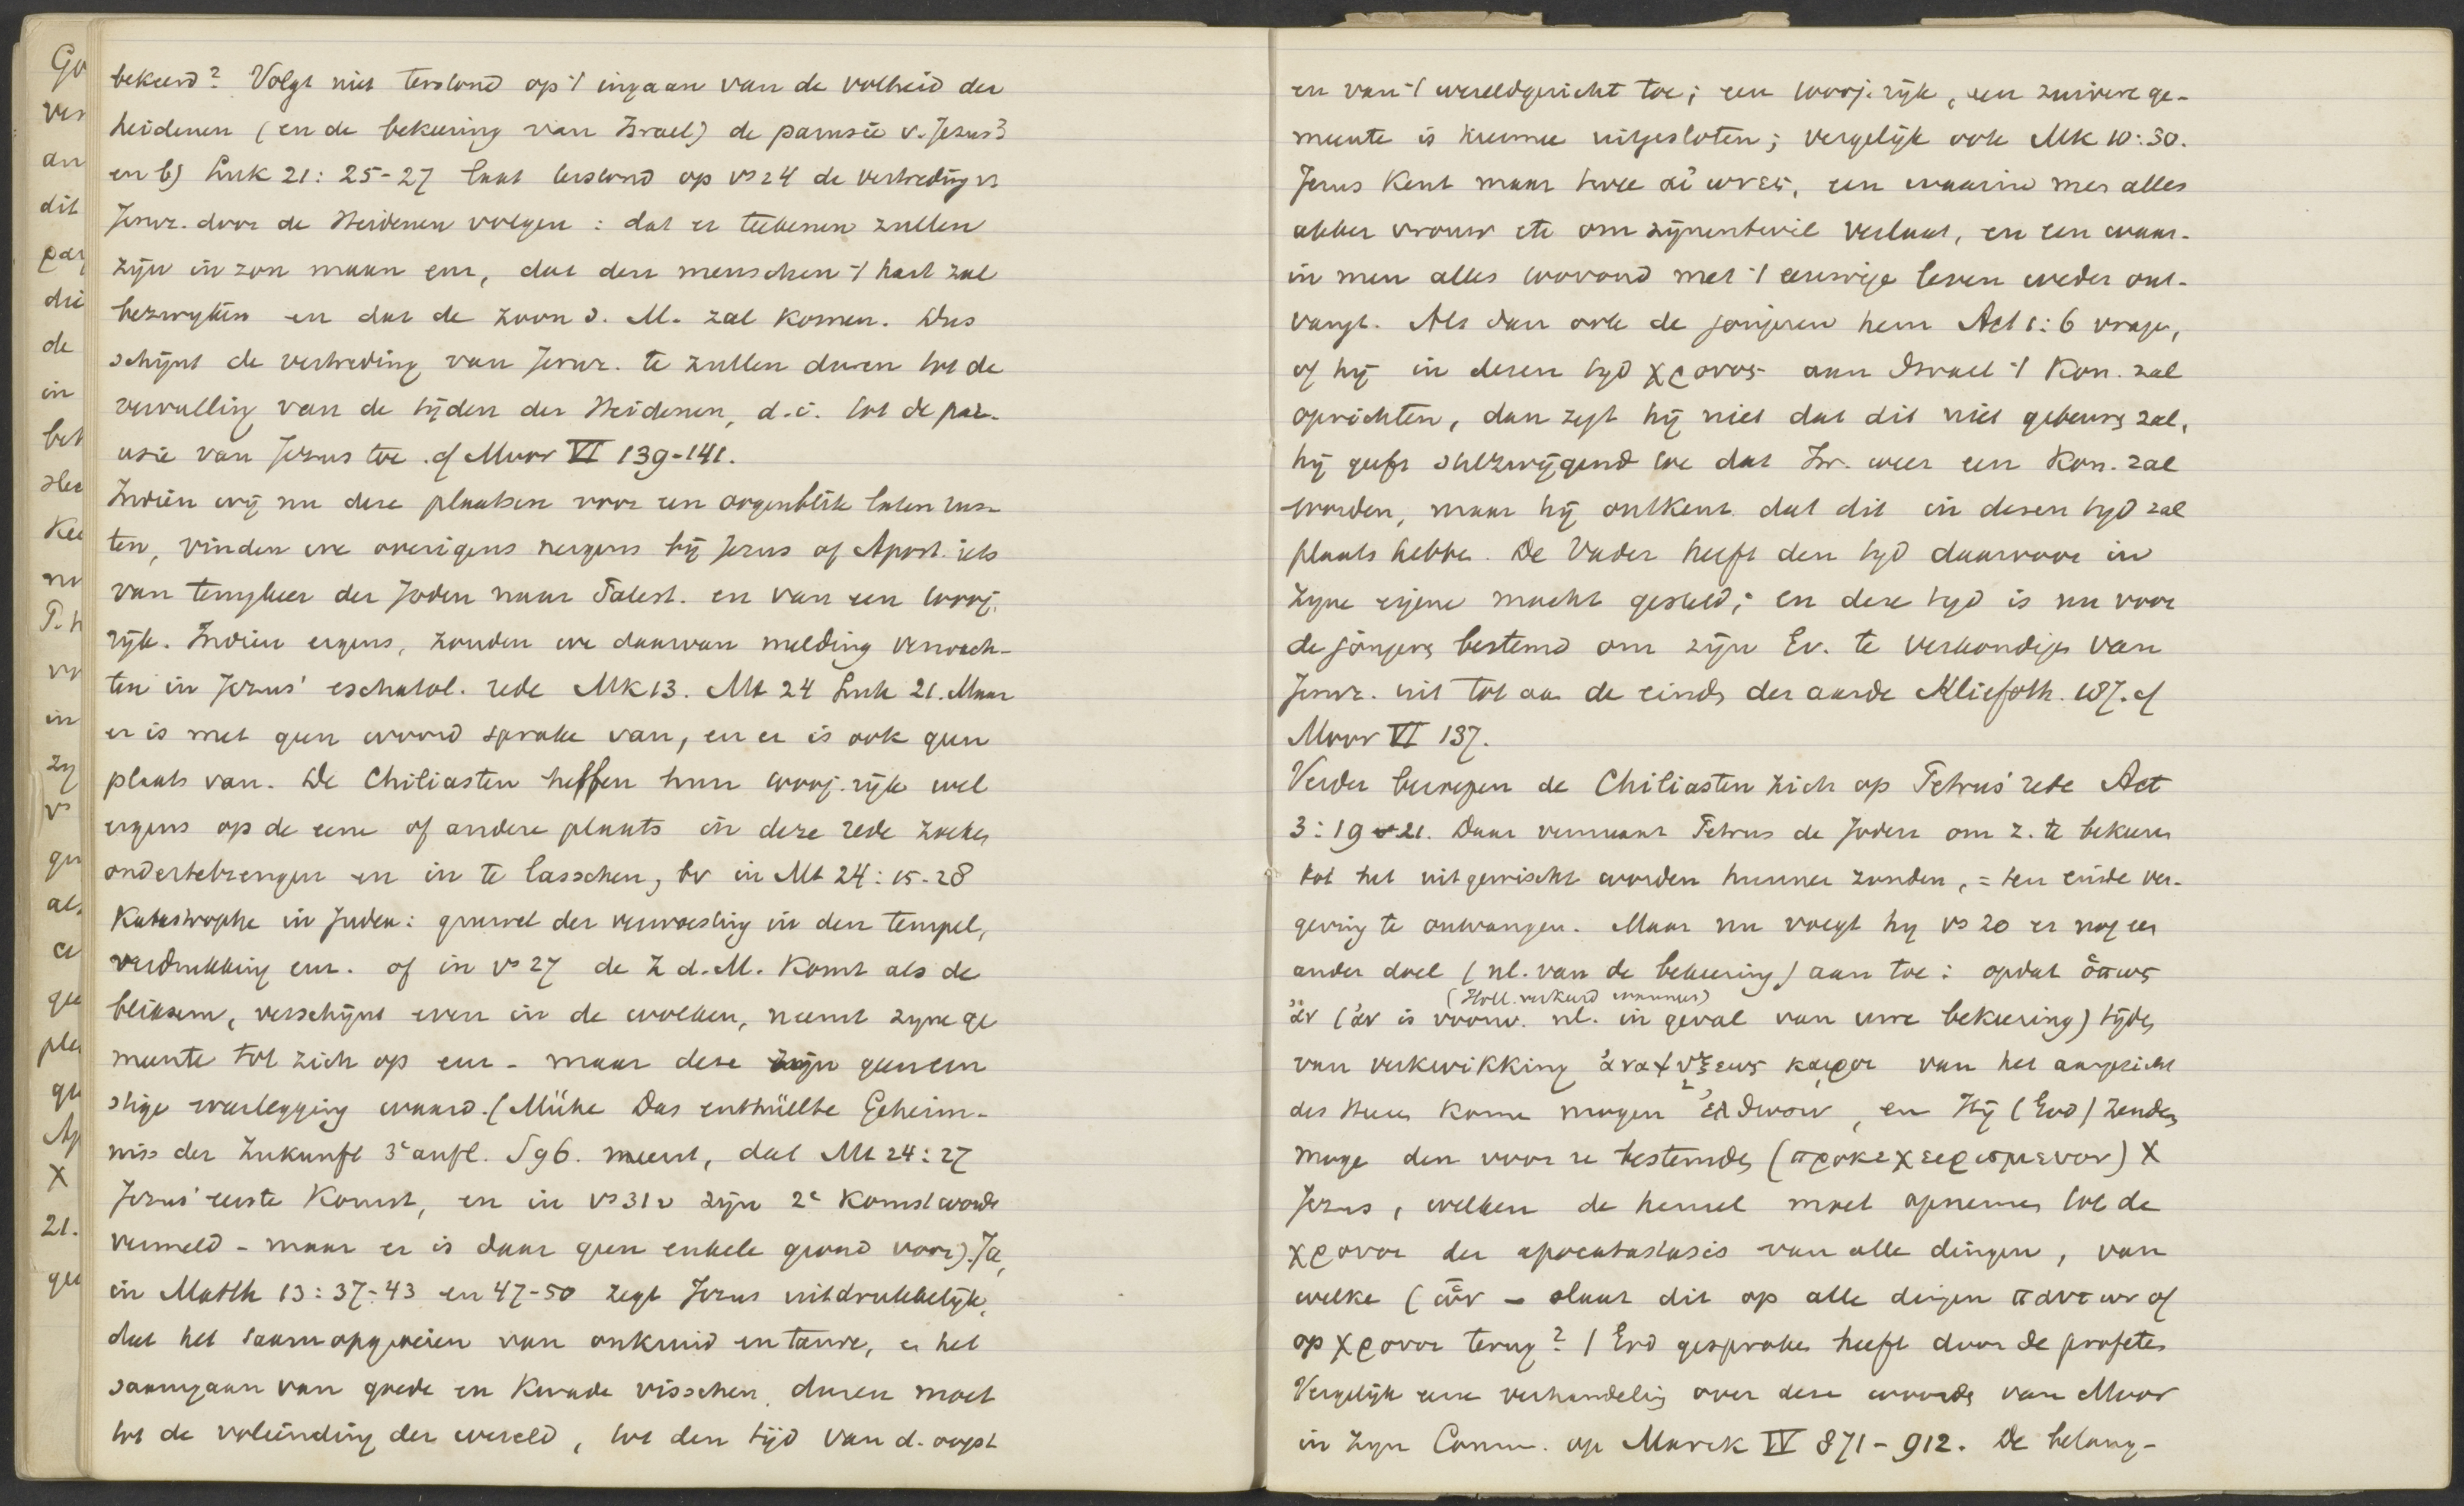 bekeerd? Volgt niet terstond op 't ingaan van de volheid der
heidenen (en de bekeering van Israel) de parusie v. Jezus?
en b) Luk 21: 25-27 laat terstond op vs 24 de vertreding v
Jeruz. door de Heidenen volgen: dat er teekenen zullen
zijn in zon maan enz, dat den menschen 't hart zal
bezwyken en dat de Zoon d. M. zal komen. Dus
schijnt de vertreding van Jeruz. te zullen duren tot de
vervulling van de tijden der Heidenen, d.i. tot de par-
usie van Jezus toe. cf Moor VI 139-141.
Indien wij nu deze plaatsen voor een oogenblik laten rus-
ten, vinden we overigens nergens bij Jezus of Apost. iets
van terugkeer der Joden naar Palest. en van een 1000j.
rijk. Indien ergens, zouden we daarvan melding verwach-
ten in Jezus' eschatol. rede Mk 13. Mt 24 Luk 21. Maar
er is met geen woord sprake van, en er is ook geen
plaats van. De Chiliasten heffen hun 1000j. rijk wel
ergens op de eene of andere plaats in deze rede zoeken
ondertebrengen en in te lasschen, bv in Mt 24: 15-28
Katastrophe in Judea: gruwel der verwoesting in den tempel,
verdrukking enz. of in vs 27 de Z d. M. komt als de
bliksem, verschijnt even in de wolken, neemt zyne ge
meente tot zich op enz - maar deze zijn geen ern
stige weerlegging waard. (Mühe Das enthüllte Geheim-
niss der Zukunft 3e aufl. S 96. meent, dat Mt 24: 27
Jezus' eerste Komst, en in vs 31v zijn 2e Komst worde
vermeld - maar er is daar geen enkele grond voor). Ja,
in Matth 13: 37-43 en 47-50 zegt Jezus uitdrukkelijk,
dat het saamopgroeien van onkruid en tarwe, en het
saamgaan van goede en kwade visschen, duren moet
tot de voleinding der wereld, tot den tijd van d. oogst
en van 't wereldgericht toe; een 1000j. rijk, een zuivere ge-
meente is hiermee uitgesloten; vergelijk ook Mk 10: 30.
Jezus kent maar twee αἰωνες, een waarin men alles
akker vrouw etc om zijnentwil verlaat, en een waar-
in men alles 100voud met 't eeuwige leven weder ont-
vangt. Als dan ook de jongeren hem Act 1: 6 vragen,
of hij in dezen tyd χρονος aan Israel 't Kon. zal
oprichten, dan zegt hij niet dat dit niet gebeuren zal,
hij geeft stilzwijgend toe dat Isr. weer een Kon. zal
worden, maar hij ontkent dat dit in dezen tyd zal
plaats hebben. De Vader heeft den tyd daarvoor in
zyne eigene macht gesteld; en deze tyd is nu voor
de jongeren bestemd om zijn Ev. te verkondigen van
Jeruz. uit tot aan de einden der aarde Kliefoth. 187. cf
Moor VI 137.
Verder beroepen de Chiliasten zich op Petrus' rede Act
3: 19-21. Daar vermaant Petrus de Joden om z. te bekeeren
tot het uitgewischt worden hunner zonden, = ten einde ver-
geving te ontvangen. Maar nu voegt hy vs 20 er nog een
ander doel (nl. van de bekeering) aan toe: opdat ὅπως
(Holl. verkeerd wanneer)
ἄν (ἄν is voorw. nl. in geval van uwe bekeering) tijden
van verkwikking ἀναψυξεως καιροι van het aangezicht
des Heeren komen mogen ἐλθωσιν, en Hij (God) zenden
moge den voor u bestemden (προκεχειρισμενον) X
Jezus, welken de hemel moet opnemen tot de
χρονοι der apocatastasis van alle dingen, van
welke (ὧν - slaat dit op alle dingen παντων of
op χρονοι terug?) God gesproken heeft door de profeten
Vergelijk eene verhandeling over deze woorden van Moor
in zyn Comm. op Marck IV 871-912. De belang-